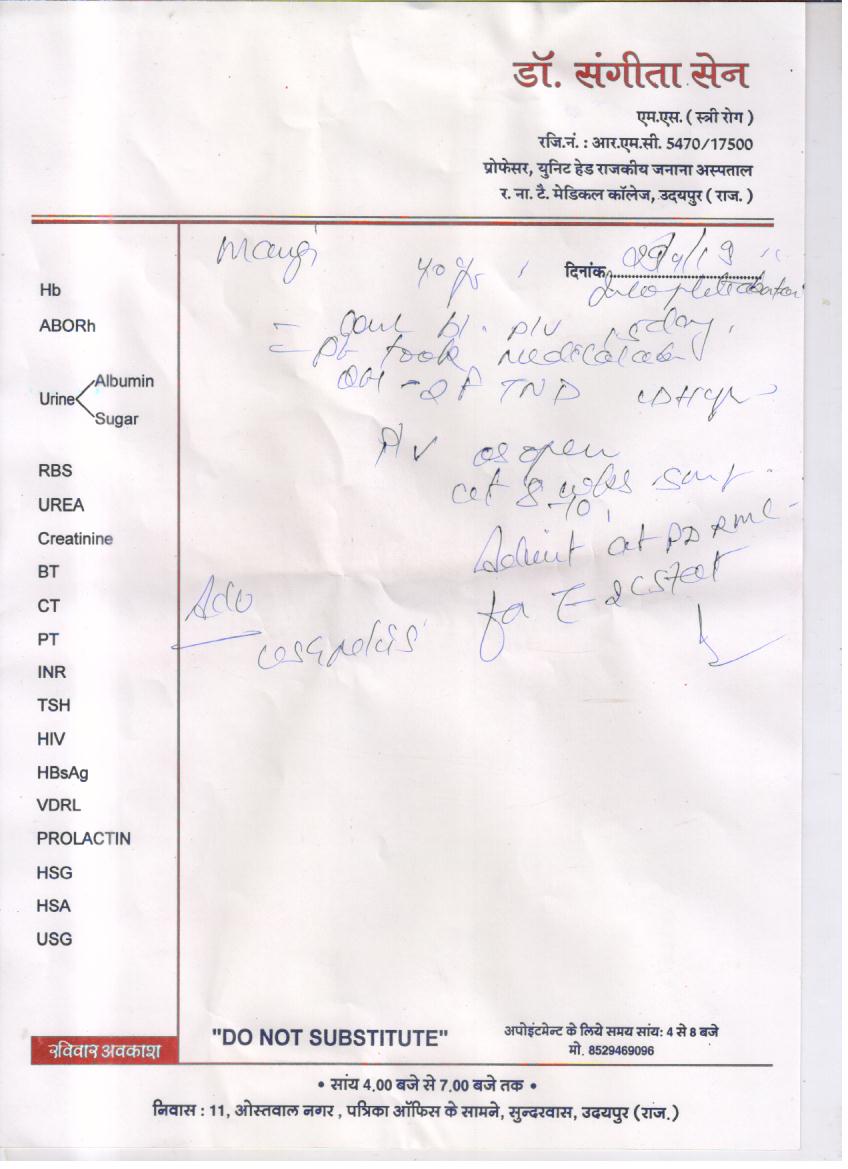 डॉ. संगीता सेन
एम.एस. ( स्त्री रोग )
रजि.नं. : आर.एम.सी. 5470/17500
प्रोफेसर, युनिट हेड राजकीय जनाना अस्पताल
र. ना. टै. मेडिकल कॉलेज, उदयपुर ( राज. )
mangi 40 yr
दिनांक
Hb
ABORh
bl. P/V 15 day.
Pt took
OH - 2 F TND
Urine
Albumin
Sugar
P/V os open
ut 8 wks
-10
RBS
UREA
Creatinine
Admit at PD RMC
BT
CT
Adv for E
PT
INR
TSH
HIV
HBsAg
VDRL
PROLACTIN
HSG
HSA
USG
रविवार अवकाश
"DO NOT SUBSTITUTE"
अपोइंटमेन्ट के लिये समय सांय: 4 से 8 बजे
मो. 8529469096
• सांय 4.00 बजे से 7.00 बजे तक •
निवास : 11, ओस्तवाल नगर , पत्रिका ऑफिस के सामने, सुन्दरवास, उदयपुर (राज.)